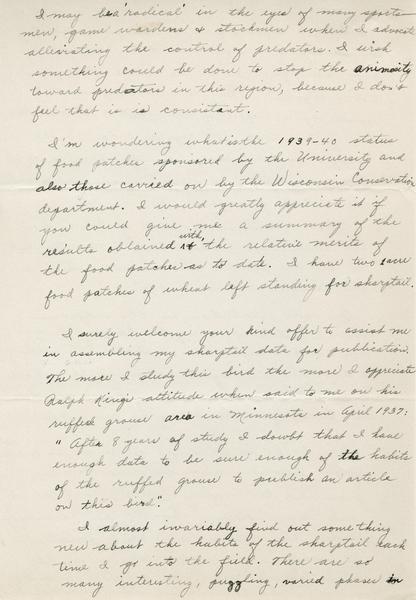 I may be a 'radical' in the eyes of many sports-
men, game wardens & stockmen when I advocate
alleviating the control of predators. I wish
something could be done to stop the animosity
toward predators in this region, because I don't
feel that is is consistant.
I'm wondering what is the 1939-40 status
of food patches sponsored by the University and
also those carried on by the Wisconsin Conservation
department. I would greatly appreciate it if
you could give me a summary of the
results obtained with the relative merits of
the food patches as to date. I have two 1 acre
food patches of wheat left standing for sharptail.
I surely welcome your kind offer to assist me
in assembling my sharptail data for publication.
The more I study this bird the more I appreciate
Ralph King's attitude when said to me on his
ruffed grouse area in Minnesota in April 1937:
"After 8 years of study I doubt that I have
enough data to be sure enough of the habits
of the ruffed grouse to publish an article
on this bird".
I almost invariably find out some thing
new about the habits of the sharptail each
time I go into the field. There are so
many interesting, puzzling, varied phases in